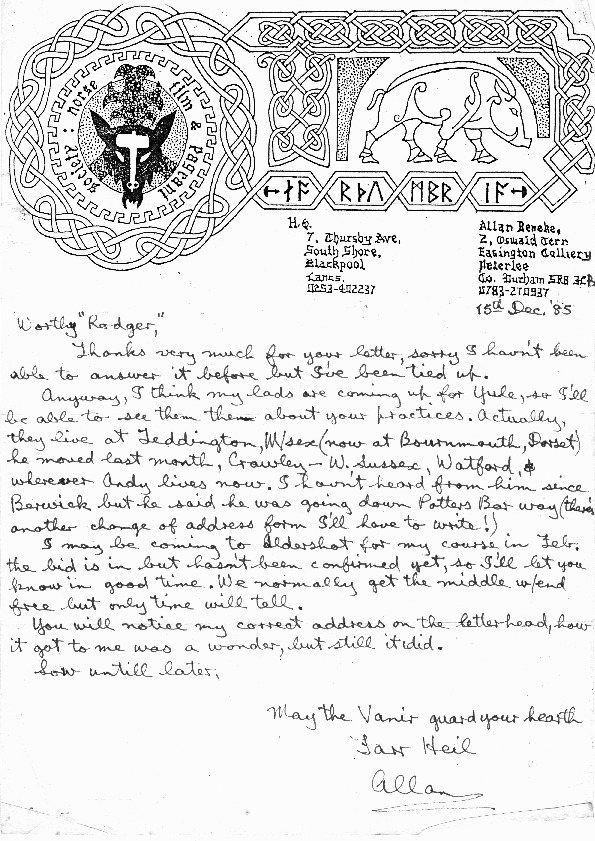 norse film & Pageant society :
ᚾᚨ ᚱᚦᚢ ᛗᛒᚱ ᛁᚨ
H.Q.
7, Thursby Ave,
South Shore,
Blackpool
Lancs.
Allan Beneke,
2, Oswald Terr
Easington Colliery
Peterlee
Co. Durham SR8
0783-270937
15th Dec, '85
Worthy "Radger,"
Thanks very much for your letter, sorry I havn't been
able to answer it before but I've been tied up.
Anyway, I think my lads are coming up for Yule, so I'll
be able to see them them about your practices. Actually,
they live at Teddington, M/sex (now at Bournmouth, Dorset)
he moved last month, Crawley – W. Sussex, Watford, &
wherever Andy lives now. I havn't heard from him since
Berwick but he said he was going down Potters Bar way (there's
another change of address form I'll have to write!)
I may be coming to Aldershot for my course in Feb.
the bid is in but hasn't been confirmed yet, so I'll let you
know in good time. We normally get the middle w/end
free but only time will tell.
You will notice my correct address on the letterhead, how
it got to me was a wonder, but still it did.
Sow untill later,
May the Vanir guard your hearth
Farr Heil
Allan